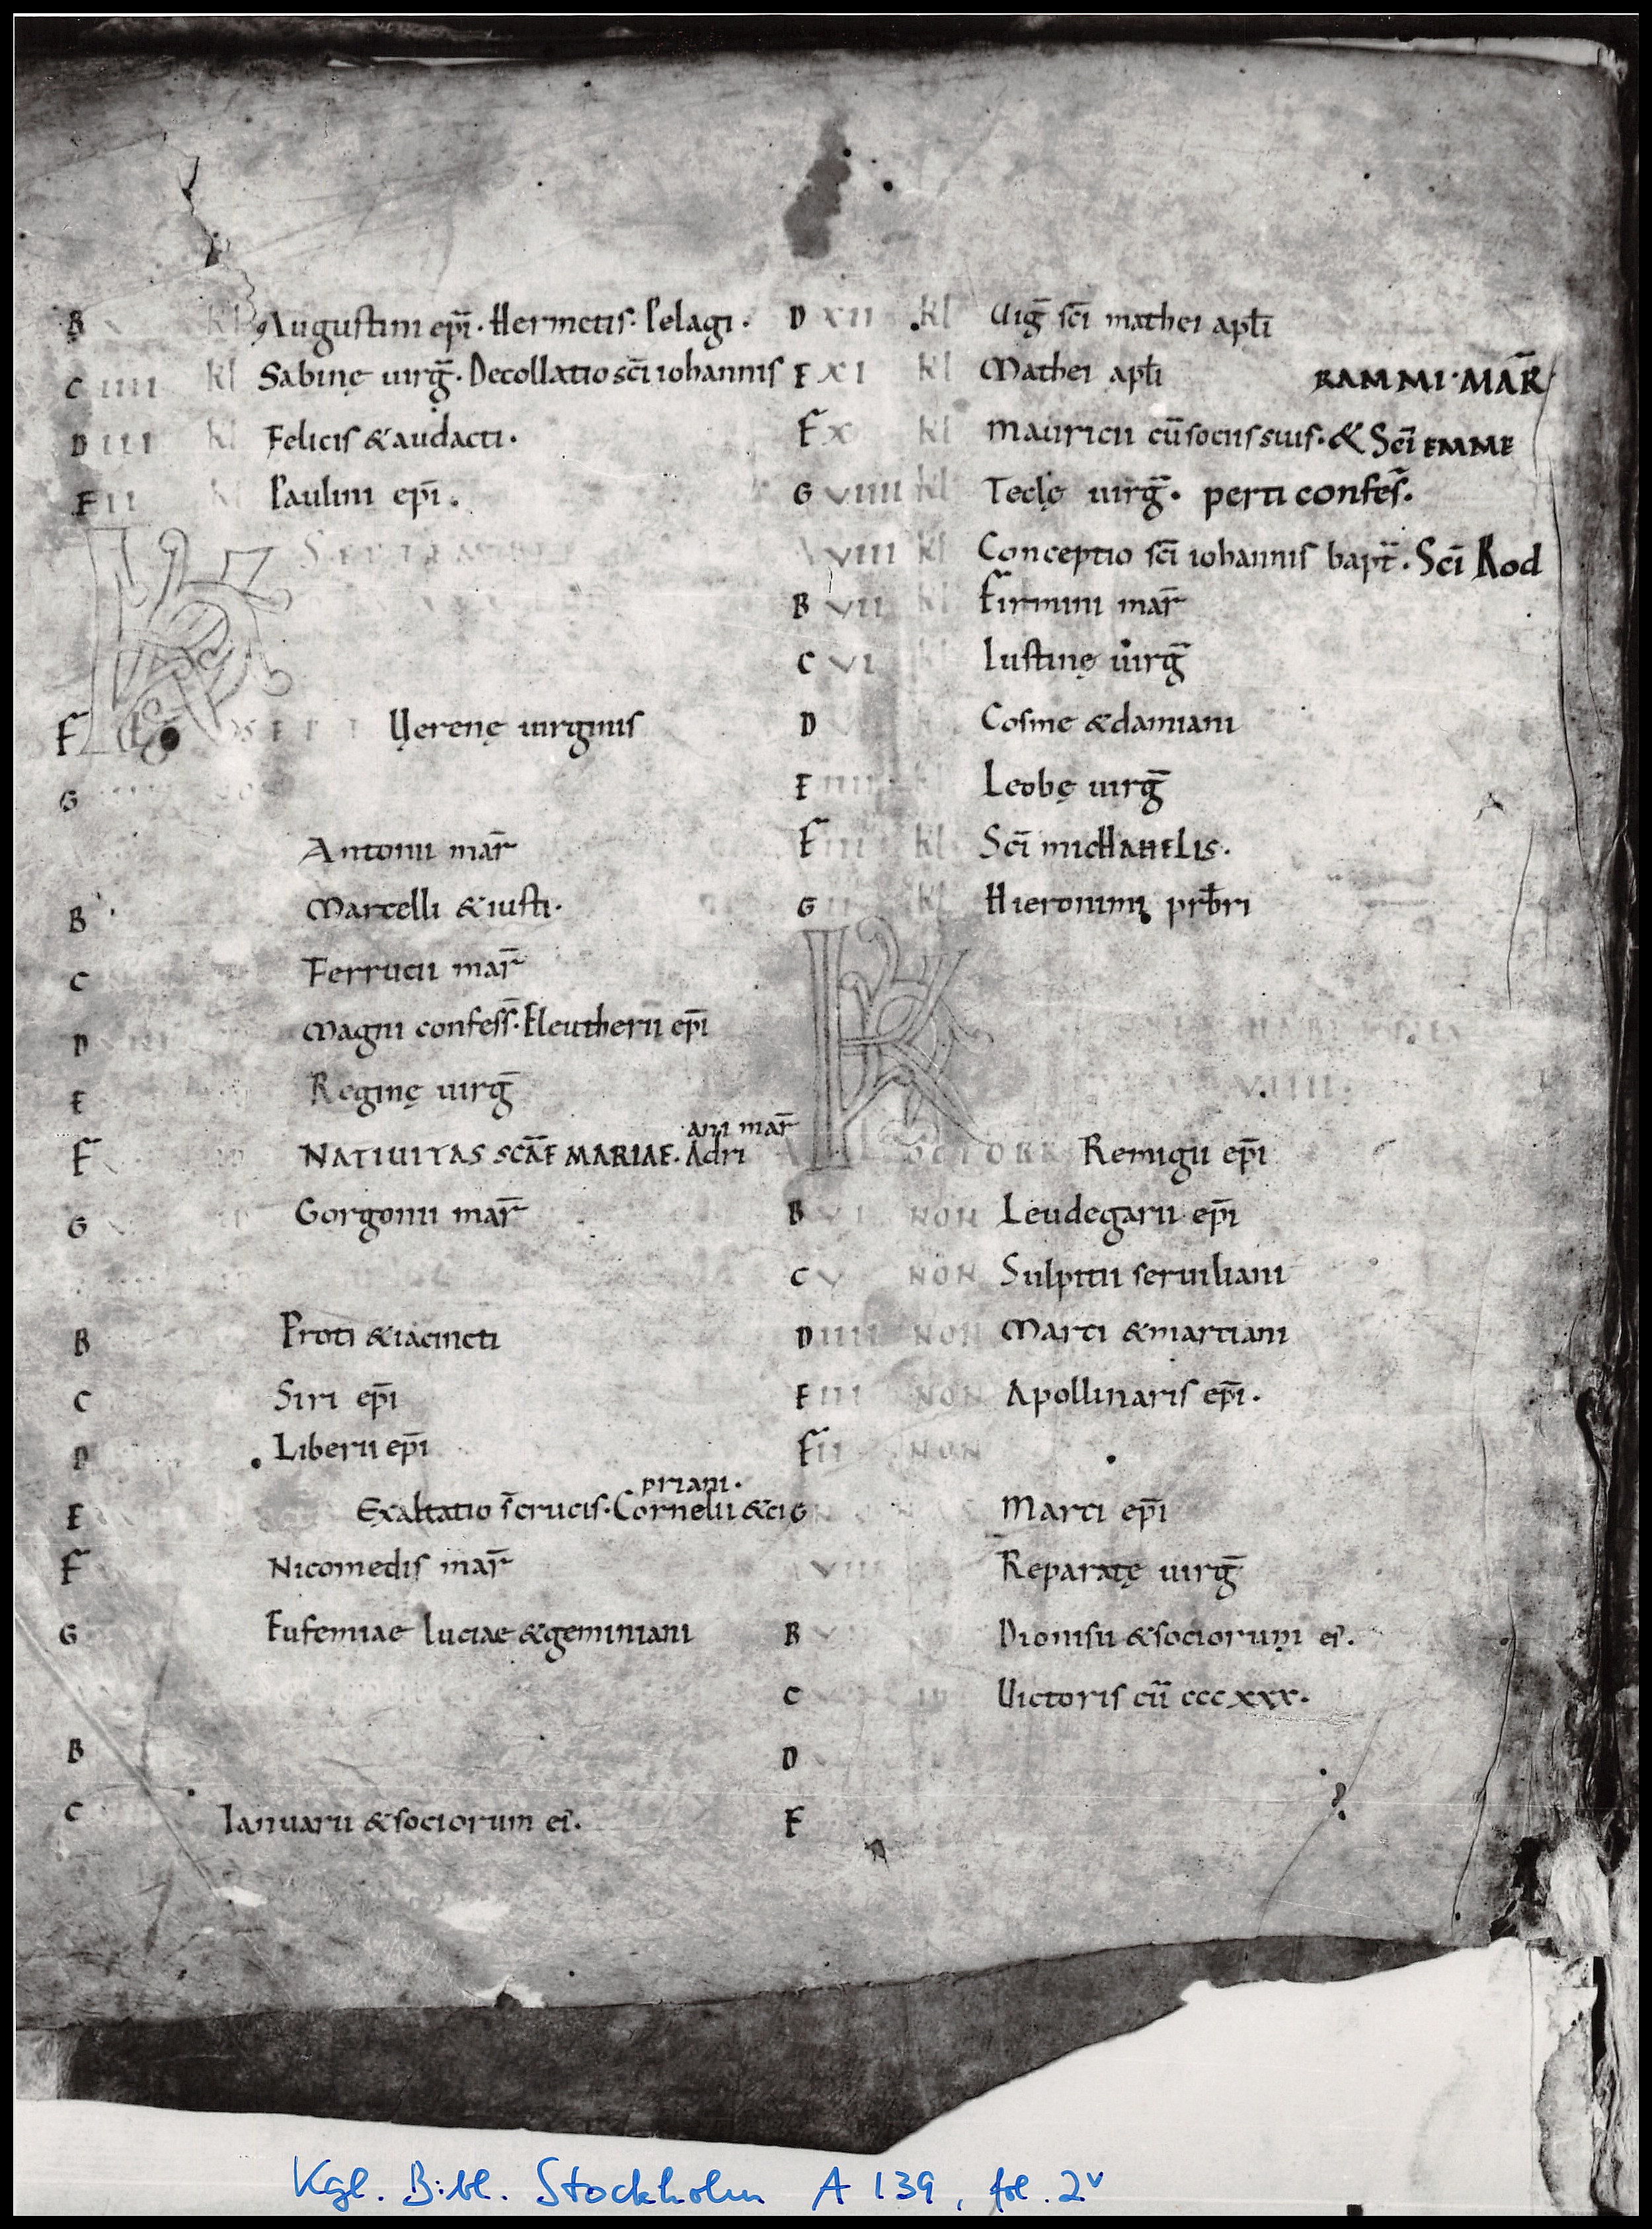 B V kl Augustini ep̄i · Hermetis · Pelagi ·
C IIII kl Sabinę uirḡ · Decollatio sc̄i iohannis
D III kl Felicis & audacti ·
E II kl Paulini ep̄i .
SEPTEMBER
F SEPT Uerenę uirginis
G
Antonii mar̄
B Marcelli & iusti ·
C Ferrucii mar̄
D Magni confess̄ · Eleutherii ep̄i
E Reginę uirḡ
ani mar̄
F NATIUITAS SC̄AE MARIAE · Adri
G Gorgonii mar̄
B Proti & iacincti
C Siri ep̄i
D Liberii ep̄i
priani ·
E Exaltatio s̄ crucis · Cornelii & ci
F Nicomedis mar̄
G Eufemiae luciae & geminiani
B
C Ianuarii & sociorum ei' .
D XII kl Uiḡ sc̄i mathei apl̄i
E XI kl Mathei apl̄i RAMMI · MAR̄
F X kl Mauricii cū sociis suis · & Sc̄i EMME
G VIIII kl Teclę uirḡ · perti confes̄ .
VIII kl Conceptio sc̄i iohannis bapt̄ . Sc̄i Rod
B VII kl Firmini mar̄
C VI kl Iustinę uirḡ
D Cosme & damiani
E IIII kl Leobę uirḡ
F III kl Sc̄i micHAHELIS .
G II kl Hieronimi pr̄bri
VIIII .
OCTOBR Remigii ep̄i
B VI NON Leudegarii ep̄i
C V NON Sulpitii seruiliani
D IIII NON Marci & martiani
E III NON Apollinaris ep̄i .
F II NON
G Marci ep̄i
VIII Reparatę uirḡ
B Dionisii & sociorum ei' .
C Uictoris cū cccxxx .
D
E
Kgl. Bibl. Stockholm A 139, fol. 2v